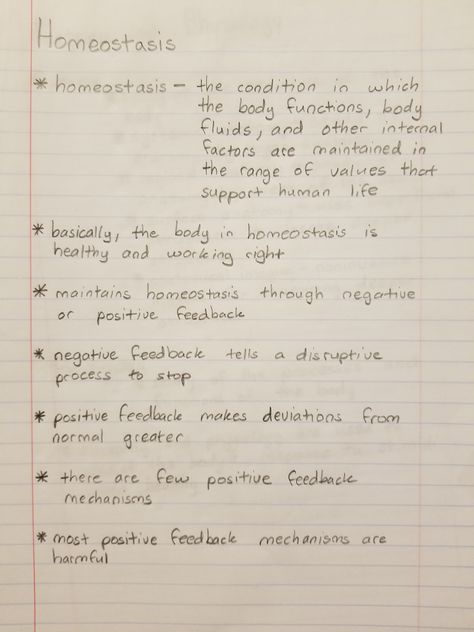 Homeostasis
* homeostasis – the condition in which
the body functions, body
fluids, and other internal
factors are maintained in
the range of values that
support human life
* basically, the body in homeostasis is
healthy and working right
* maintains homeostasis through negative
or positive feedback
* negative feedback tells a disruptive
process to stop
* positive feedback makes deviations from
normal greater
* there are few positive feedback
mechanisms
* most positive feedback mechanisms are
harmful